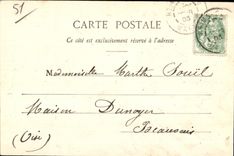 51
CARTE POSTALE
Ce côté est exclusivement réservé à l'adresse
Mademoiselle Marthe Souël
Maison Dunoyer
Beauvais
(Oise)